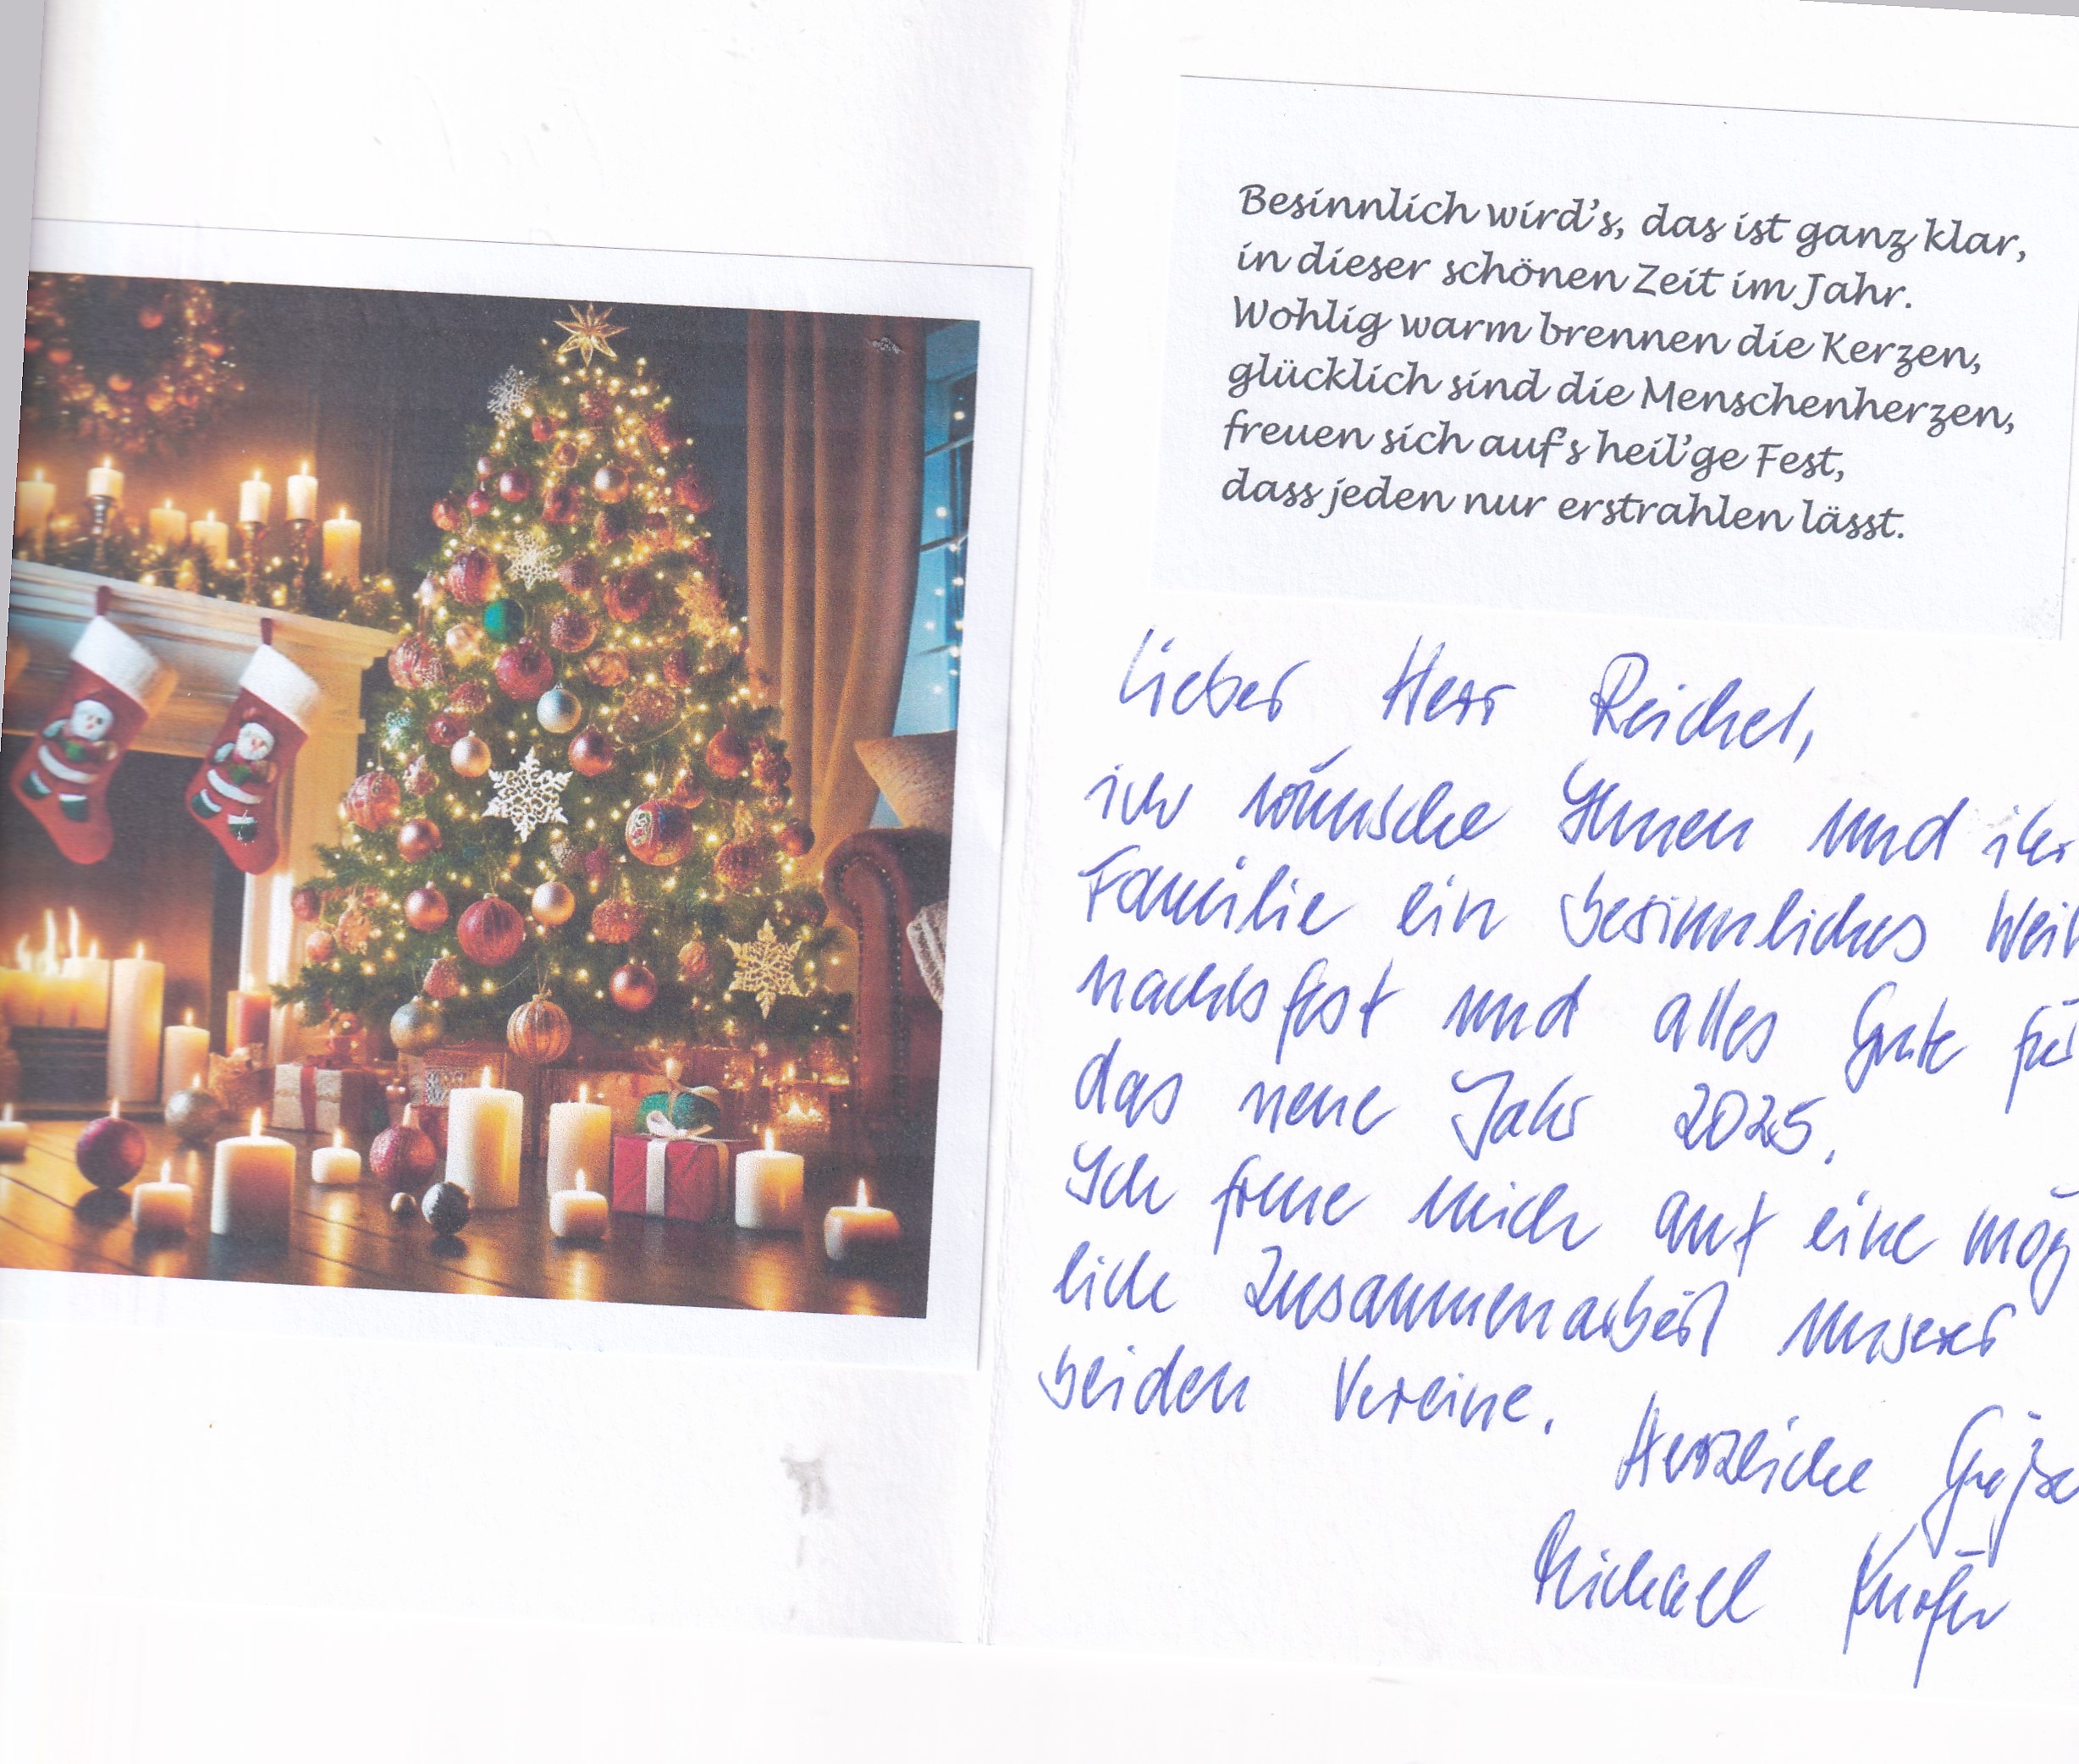 Besinnlich wird's, das ist ganz klar,
in dieser schönen Zeit im Jahr.
Wohlig warm brennen die Kerzen,
glücklich sind die Menschenherzen,
freuen sich auf's heil'ge Fest,
dass jeden nur erstrahlen lässt.
Lieber Herr Reichel,
ich wünsche Ihnen und ihr
Familie ein besinnliches Weih
nachtsfest und alles Gute für
das neue Jahr 2025.
Ich freue mich auf eine mög
liche Zusammenarbeit unserer
beiden Vereine.
Herzliche Grüße
Michael